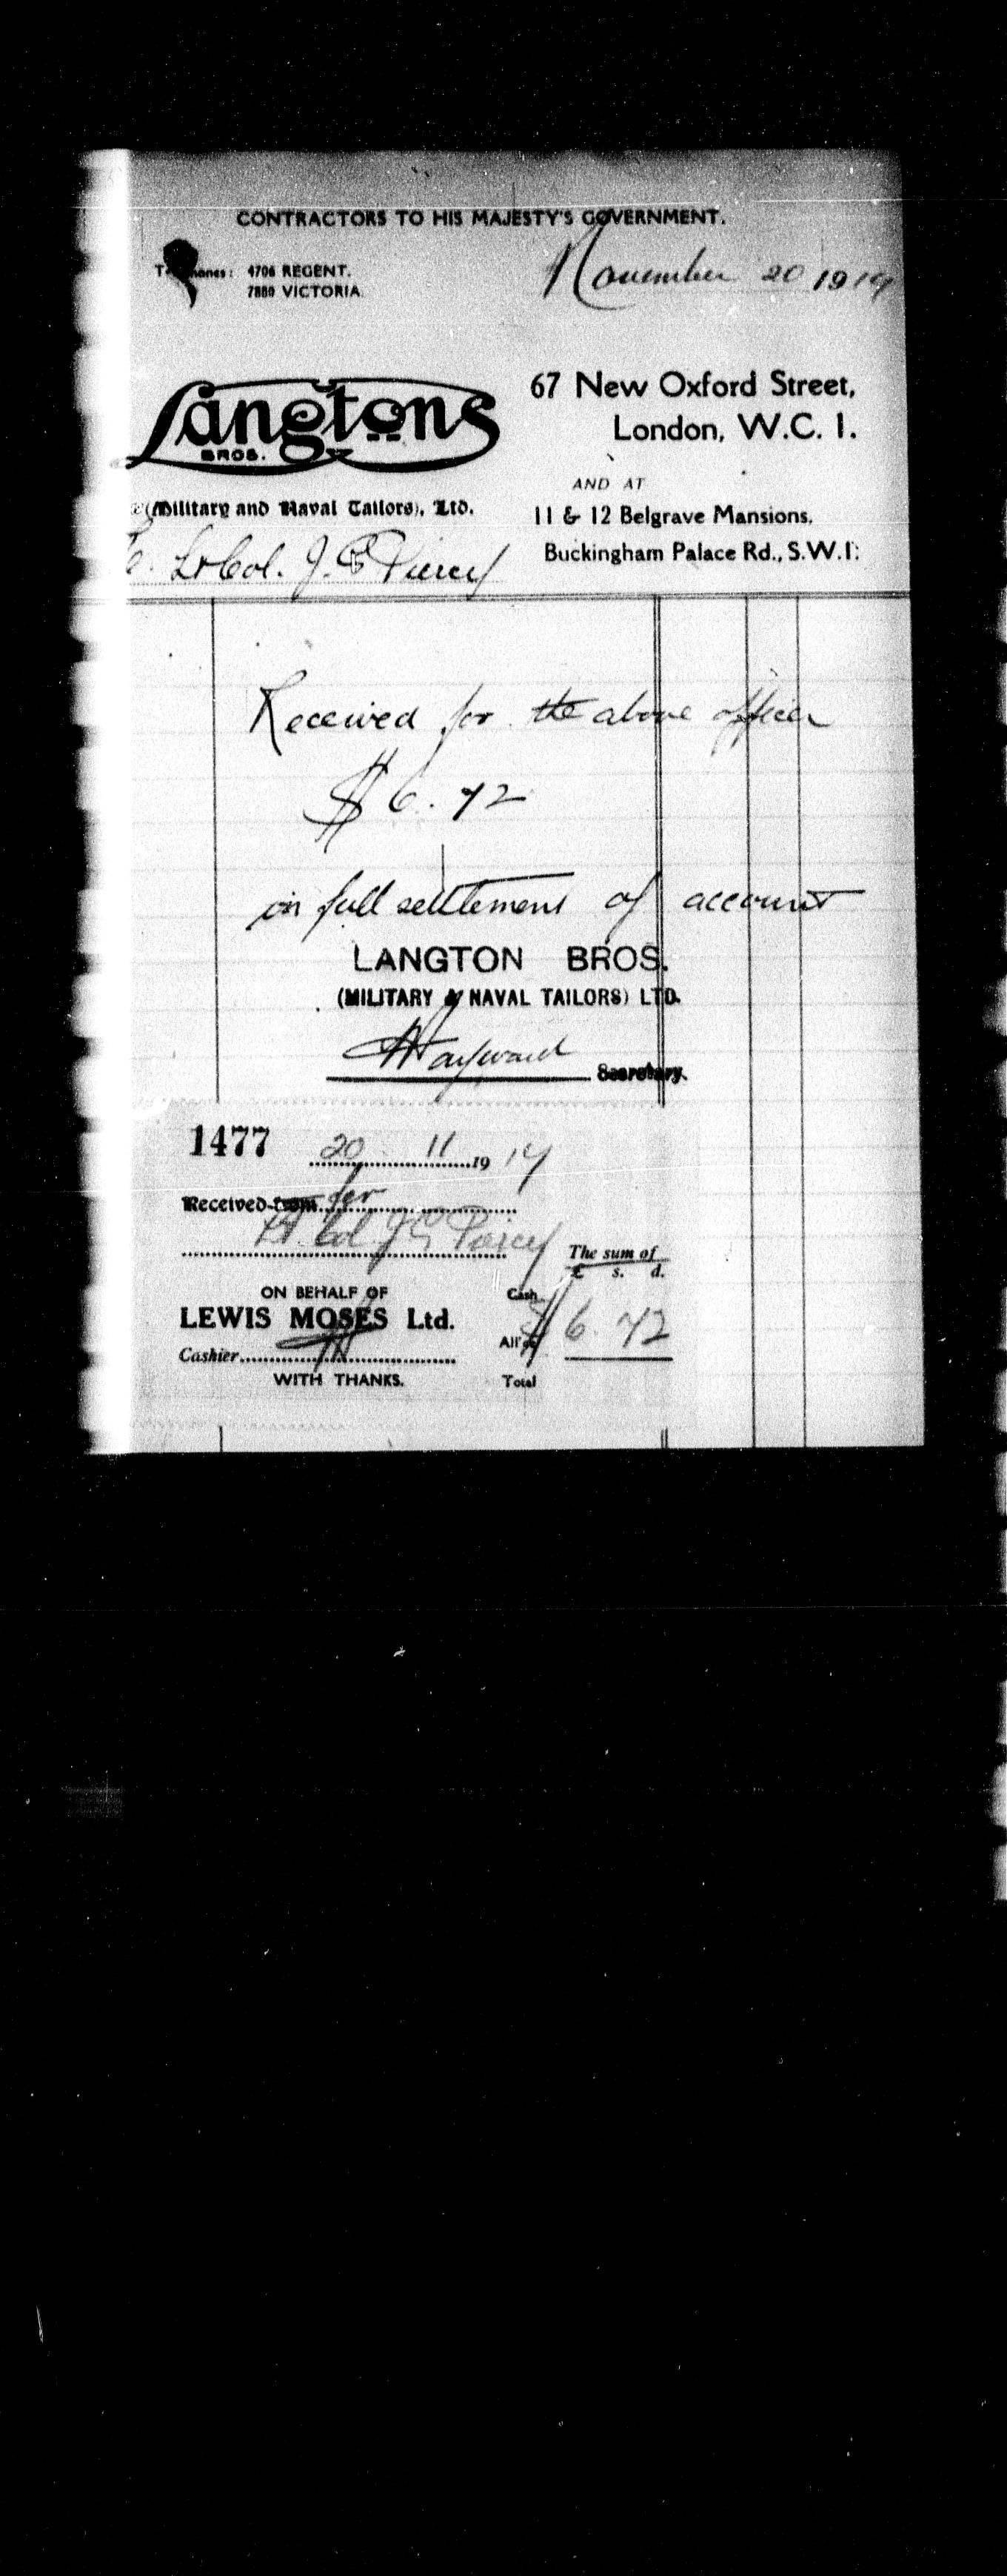 CONTRACTORS TO HIS MAJESTY'S GOVERNMENT.
4706 REGENT.
7880 VICTORIA.
November 20 1919
Langtons
BROS.
(Military and Naval Tailors), Ltd.
67 New Oxford Street,
London, W.C. 1.
AND AT
11 & 12 Belgrave Mansions,
Buckingham Palace Rd., S.W.1.
Lt Col. J. E Piercy
Received for the above officer
$ 6. 72
in full settlement of account
LANGTON BROS.
(MILITARY & NAVAL TAILORS) LTD.
Hayward
Secretary.
1477 20 11 1919
Received from for
Lt. Col. J E Piercy
The sum of
£ s. d.
ON BEHALF OF
LEWIS MOSES Ltd.
Cash
$ 6. 72
Cashier
WITH THANKS.
Total